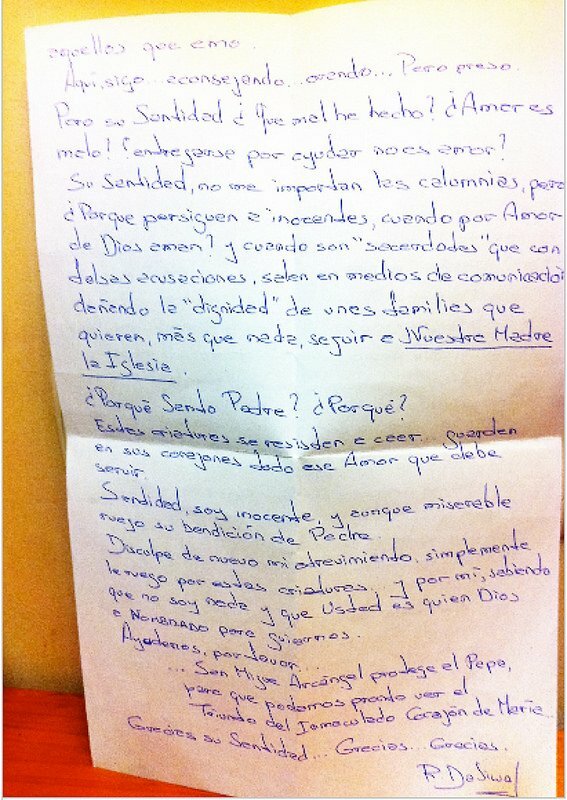 aquellos que amo.
Aquí, sigo... aconsejando... orando... Pero preso.
Pero su Santidad ¿Que mal he hecho? ¿Amar es
malo? ¿entregarse por ayudar no es amor?
Su Santidad, no me importan las calumnias, pero
¿Porque persiguen a inocentes, cuando por Amor
de Dios aman? y cuando son "sacerdotes" que con
falsas acusaciones, salen en medios de comunicación
dañando la "dignidad" de unas familias que
quieren, más que nada, seguir a Nuestra Madre
la Iglesia.
¿Porqué Santo Padre? ¿Porqué?
Estas criaturas se resisten a caer... Guardan
en sus corazones todo ese Amor que debe
servir.
Santidad, soy inocente, y aunque miserable
ruego su bendición de Padre.
Disculpe de nuevo mi atrevimiento, simplemente
le ruego por estas criaturas... y por mi, sabiendo
que no soy nada y que Usted es quien Dios
a NOMBRADO para guiarnos.
Ayudenos, por favor...
... San Miguel Arcángel protege al Papa,
para que podamos pronto ver el
Triunfo del Inmaculado Corazón de María...
Gracias su Santidad... Gracias... Gracias.